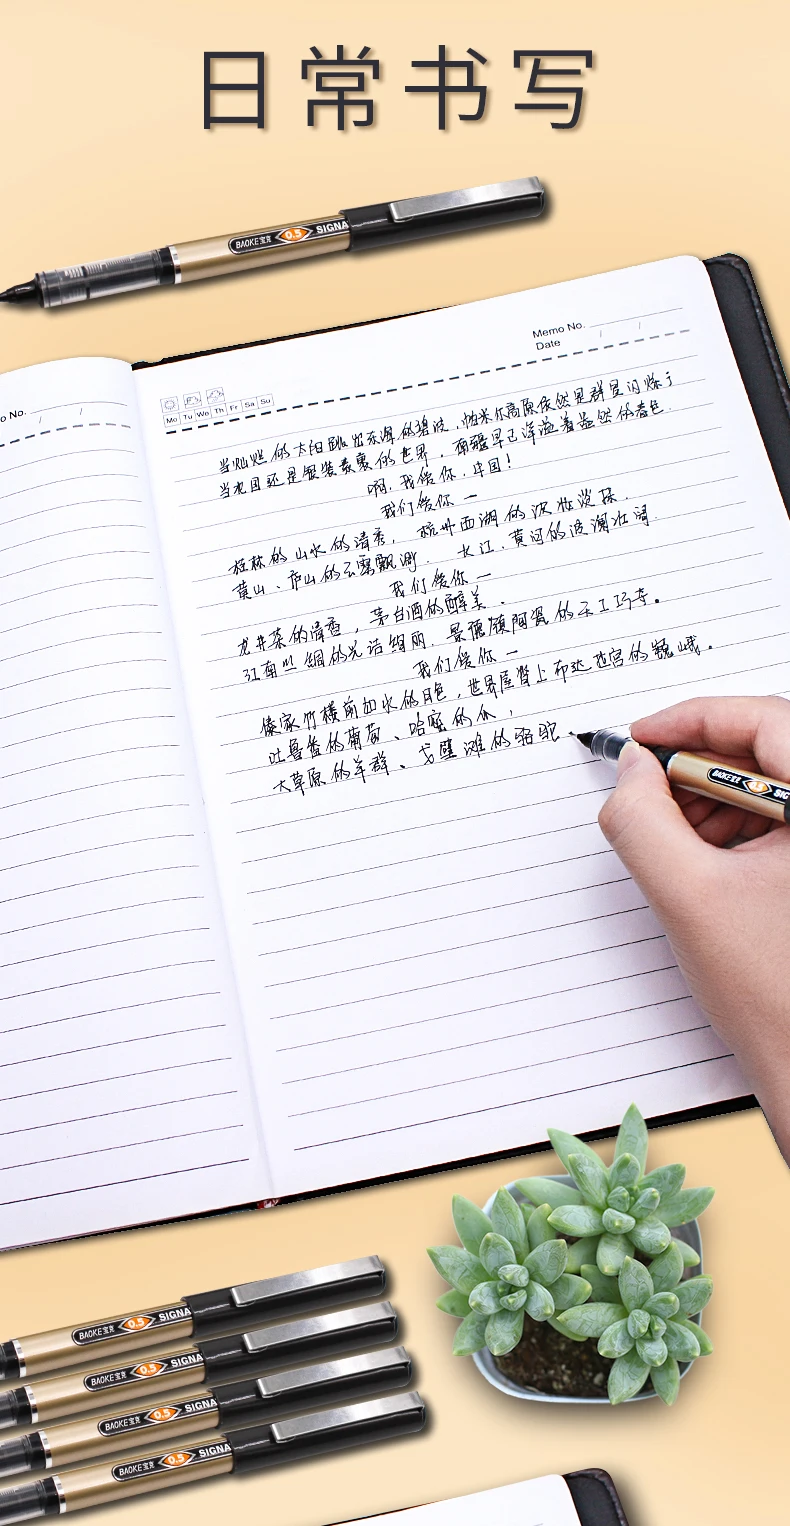 日常书写
BAOKE宝克 0.5 SIGNA
Memo No.
Date
o No.
Mo Tu We Th Fr Sa Su
当灿烂的太阳跳出东海的碧波，帕米尔高原依然是群星闪烁；
当北国还是银装素裹的世界，南疆早已洋溢着盎然的春色。
啊，我爱你，中国！
我们爱你—
桂林的山水的清秀，杭州西湖的浓妆淡抹，
黄山、庐山的云雾飘渺，长江、黄河的波澜壮阔
我们爱你—
龙井茶的清香，茅台酒的醇美，
江南丝绸的光洁绚丽，景德镇陶瓷的天工巧夺。
我们爱你—
傣家竹楼前如水的月色，世界屋脊上布达拉宫的巍峨。
吐鲁番的葡萄、哈密的瓜，
大草原的羊群、戈壁滩的骆驼、
BAOKE宝克 SIG
BAOKE宝克 0.5 SIGNA
BAOKE宝克 0.5 SIGNA
BAOKE宝克 0.5 SIGNA
BAOKE宝克 0.5 SIGNA